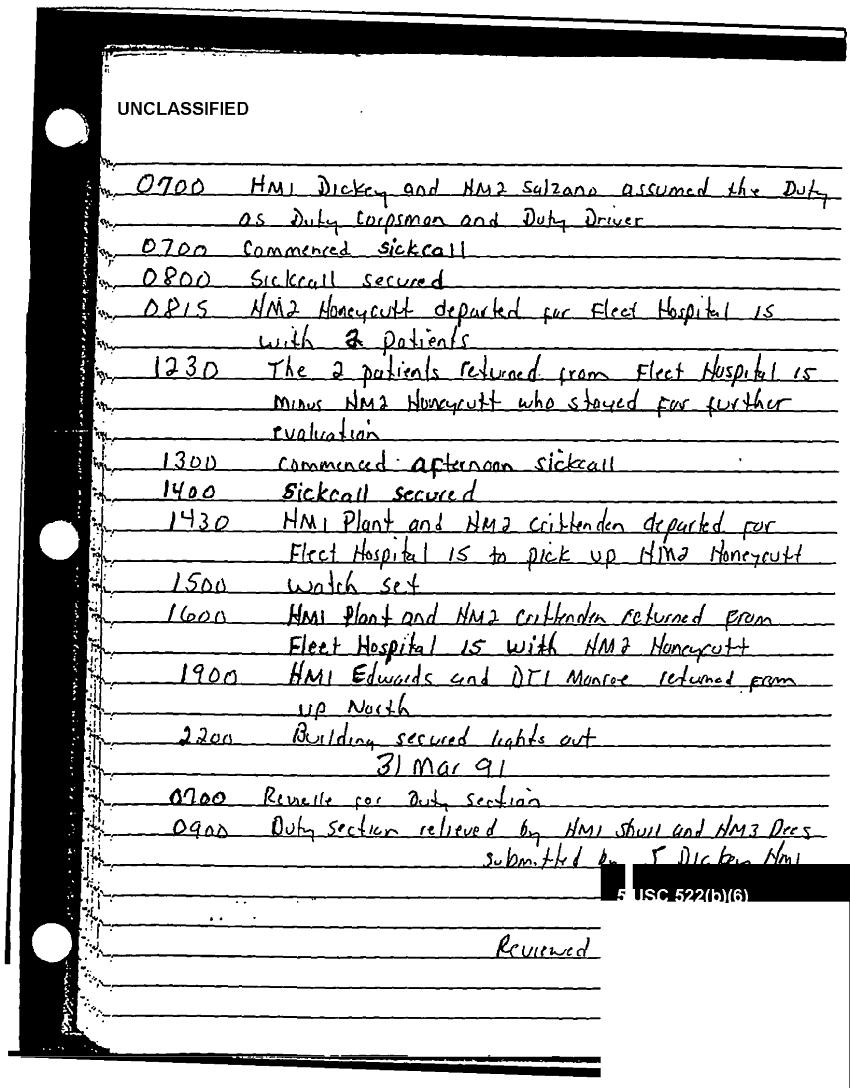 UNCLASSIFIED
0700 HM1 Dickey and HM2 Salzano assumed the Duty
as Duty Corpsman and Duty Driver
0700 Commenced sickcall
0800 Sickcall secured
0815 HM2 Honeycutt departed for Fleet Hospital 15
with 2 patients
1230 The 2 patients returned from Fleet Hospital 15
minus HM2 Honeycutt who stayed for further
evaluation
1300 commenced afternoon sickcall
1400 Sickcall secured
1430 HM1 Plant and HM2 Crittenden departed for
Fleet Hospital 15 to pick up HM2 Honeycutt
1500 Watch set
1600 HM1 Plant and HM2 Crittenden returned from
Fleet Hospital 15 with HM2 Honeycutt
1900 HM1 Edwards and DT1 Monroe returned from
up North
2200 Building secured lights out
31 Mar 91
0700 Reveille for Duty section
0900 Duty section relieved by HM1 Shull and HM3 Dees
submitted by J Dickey HM1
5 USC 522(b)(6)
Reviewed